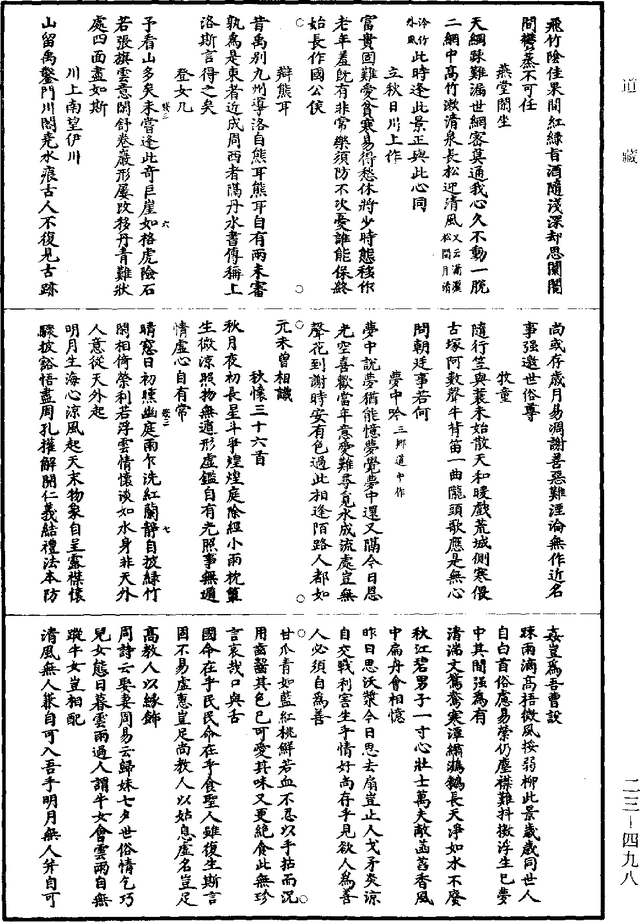 道藏
飛竹陰佳果間紅綠旨酒隨淺深却思闤闠
間鬱蒸不可任
燕堂閒坐
天網踈難漏世網密莫通我心久不動一脫
二網中高竹漱清泉長松迎清風又云瀟灑松間月清
泠竹外風此時逢此景正與此心同
立秋日川上作
富貴固難愛貧寒易得愁休將少時態移作
老年羞旣有非常樂須防不次憂誰能保終
始長作國公侯
辯熊耳
昔禹別九州導洛自熊耳熊耳自有兩未審
孰爲是東者近成周西者隔丹水書傳稱上
洛斯言得之矣
登女几
予看山多矣未嘗逢此奇巨崖如格虎險石
若張旗雲意閒舒卷巖形屢改移丹青難狀
處四面盡如斯
川上南望伊川
山留禹鑿門川閤堯水痕古人不復見古跡
尚或存歲月易凋謝善惡難涇淪無作近名
事強邀世俗尊
牧童
隨行笠與蓑未始散天和暖戲荒城側寒偎
古塚阿數聲牛背笛一曲隴頭歌應是無心
問朝廷事若何
夢中吟三鄉道中作
夢中說夢猶能憶夢覺夢中還又隔今日恩
光空喜歡當年意愛難尋覓水成流處豈無
聲花到謝時安有色過此相逢陌路人都如
元未曾相識
秋懷三十六首
秋月夜初長星斗爭煌煌庭除經小雨枕簟
生微涼照物無遁形虛鑑自有光照事無遁
情虛心自有常
晴窓日初曛幽庭雨乍洗紅蘭靜自披綠竹
閒相倚榮利若浮雲情懷淡如水身非天外
人意從天外起
明月生海心涼風起天末物象自呈露襟懷
驟披豁悟盡周孔權解開仁義結禮法本防
姦豈爲吾曹設
踈雨滴高梧微風按弱柳此景歲歲同世人
自白首俗慮易縈仍塵襟難抖擻浮生已夢
中其間強爲有
清湍文鴛鴦寒潭繡鸂鶒長天淨如水不廢
秋江碧男子一寸心壯士萬夫敵菡萏香風
中扁舟會相憶
昨日思沃漿今日思去扇豈止人戈矛炎涼
自交戰利害生乎情好尚存乎見欲人爲善
人必須自爲善
甘瓜青如藍紅桃鮮若血不忍以手拈而況
用齒齧其色已可愛其味又更絕食此無珍
言哀哉口與舌
國命在乎民民命在乎食聖人雖復生斯言
固不易虛惠豈足尚教人以姑息虛名豈足
高教人以緣飾
周詩云娶妻周易云歸妹七夕世俗情乞巧
兒女態日暮雲雨過人謂牛女會雲雨自無
蹤牛女豈相配
清風無人兼自可入吾手明月無人并自可
二三—四九八